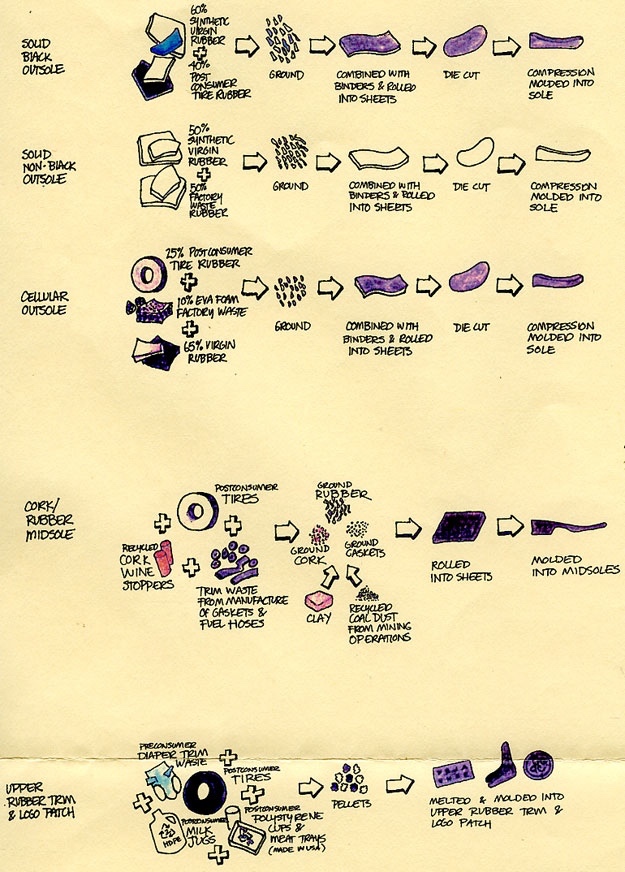 SOLID
BLACK
OUTSOLE
60%
SYNTHETIC
VIRGIN
RUBBER
+
40%
POST
CONSUMER
TIRE RUBBER
GROUND
COMBINED WITH
BINDERS & ROLLED
INTO SHEETS
DIE CUT
COMPRESSION
MOLDED INTO
SOLE
SOLID
NON-BLACK
OUTSOLE
50%
SYNTHETIC
VIRGIN
RUBBER
+
50%
FACTORY
WASTE
RUBBER
GROUND
COMBINED WITH
BINDERS & ROLLED
INTO SHEETS
DIE CUT
COMPRESSION
MOLDED INTO
SOLE
CELLULAR
OUTSOLE
25% POSTCONSUMER
TIRE RUBBER
+
10% EVA FOAM
FACTORY WASTE
+
65% VIRGIN
RUBBER
GROUND
COMBINED WITH
BINDERS & ROLLED
INTO SHEETS
DIE CUT
COMPRESSION
MOLDED INTO
SOLE
CORK/
RUBBER
MIDSOLE
POSTCONSUMER
TIRES
+
+
RECYCLED
CORK
WINE
STOPPERS
+
TRIM WASTE
FROM MANUFACTURE
OF GASKETS &
FUEL HOSES
GROUND
RUBBER
GROUND
CORK
GROUND
GASKETS
CLAY
RECYCLED
COAL DUST
FROM MINING
OPERATIONS
ROLLED
INTO SHEETS
MOLDED
INTO MIDSOLES
UPPER
RUBBER TRIM
& LOGO PATCH
PRECONSUMER
DIAPER TRIM
WASTE
+
POSTCONSUMER
TIRES
+
+
POSTCONSUMER
MILK
JUGS
HDPE
POSTCONSUMER
POLYSTYRENE
CUPS &
MEAT TRAYS
(MADE IN USA)
+
PELLETS
MELTED & MOLDED INTO
UPPER RUBBER TRIM &
LOGO PATCH